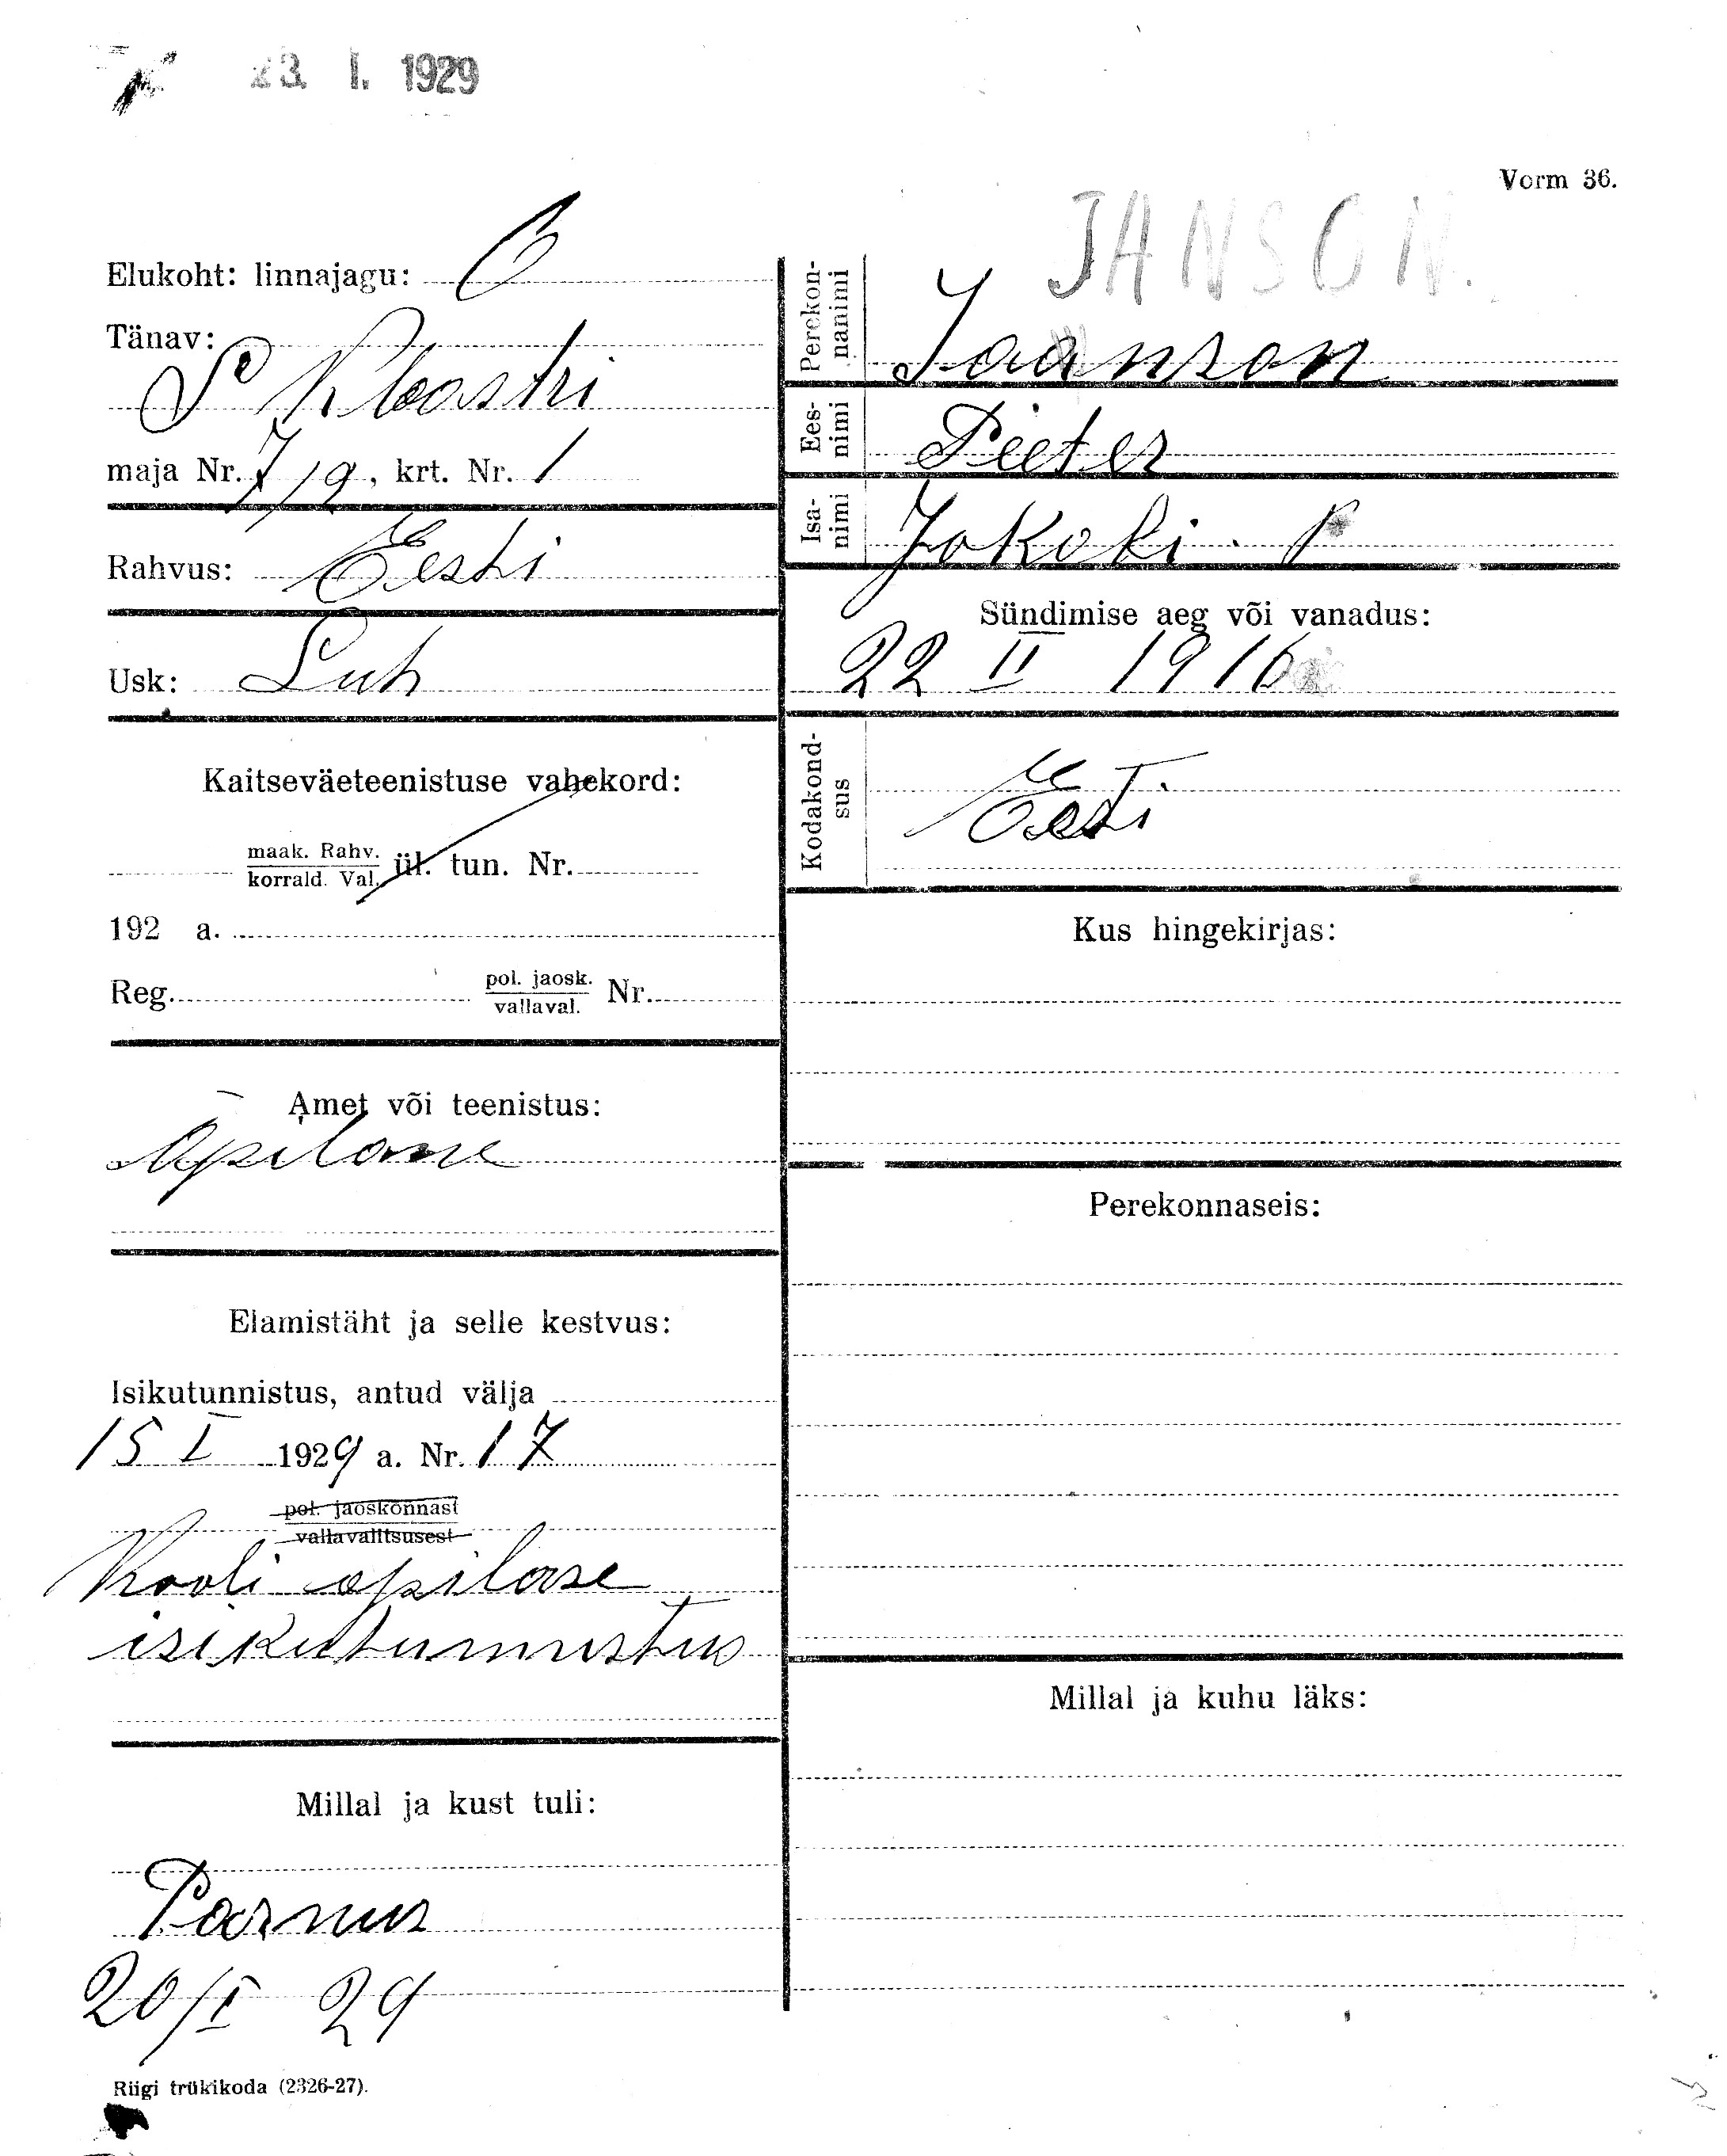 23. I. 1929
Vorm 36.
Elukoht: linnajagu:
Tänav:
S Kloostri
maja Nr. 7/9, krt. Nr. 1
Rahvus: Eesti
Usk: Luth
Kaitseväeteenistuse vahekord:
maak. Rahv.
korrald. Val. ül. tun. Nr.
192 a.
Reg. pol. jaosk.
vallaval. Nr.
Amet või teenistus:
õpilane
Elamistäht ja selle kestvus:
Isikutunnistus, antud välja
15 I 1929 a. Nr. 17
pol. jaoskonnast
vallavalitsusest
Kooli õpilase
isikutunnistus
Millal ja kust tuli:
Pärnus
20/I 29
Riigi trükikoda (2326-27).
JANSON.
Perekonnanimi
Jaanson
Eesnimi
Peeter
Isanimi
Jakobi. P
Sündimise aeg või vanadus:
22 II 1916
Kodakondsus
Eesti
Kus hingekirjas:
Perekonnaseis:
Millal ja kuhu läks: